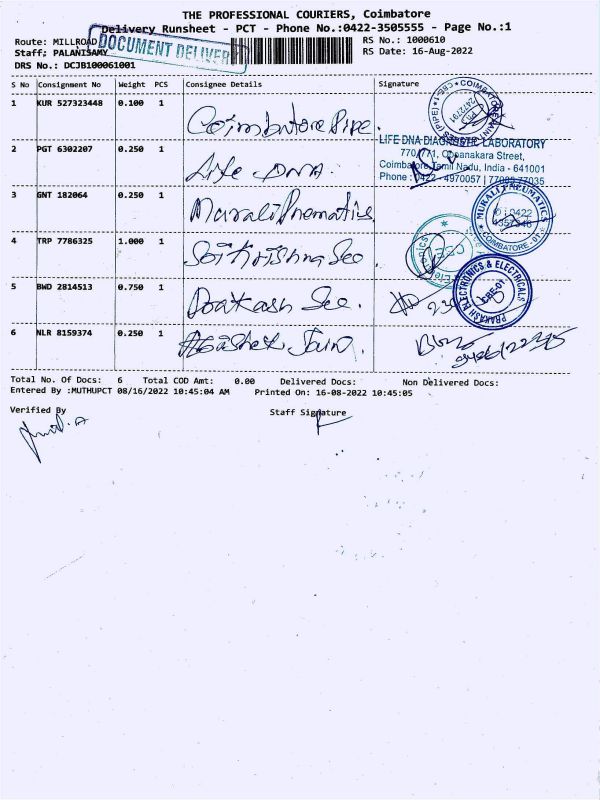 THE PROFESSIONAL COURIERS, Coimbatore
Delivery Runsheet - PCT - Phone No.:0422-3505555 - Page No.:1
Route: MILLROAD
DOCUMENT DELIVER
RS No.: 1000610
Staff: PALANISAMY
RS Date: 16-Aug-2022
DRS No.: DCJB100061001
S No Consignment No Weight PCS Consignee Details Signature
1 KUR 527323448 0.100 1 Coimbatore Pipe.
2 PGT 6302207 0.250 1 Life DNA.
LIFE DNA DIAGNOSTIC LABORATORY
770/771, Oppanakara Street,
Coimbatore, Tamil Nadu, India - 641001
Phone : 0422 - 4970057 | 77085 77035
3 GNT 182064 0.250 1 Murali Pnematics
MURALI PNEUMATICS
COIMBATORE
4 TRP 7786325 1.000 1 Sri Krishna See
5 BWD 2814513 0.750 1 Prakash See.
PRAKASH ELECTRONICS & ELECTRICALS
CBE-01.
6 NLR 8159374 0.250 1
Total No. Of Docs: 6 Total COD Amt: 0.00 Delivered Docs: Non Delivered Docs:
Entered By :MUTHUPCT 08/16/2022 10:45:04 AM Printed On: 16-08-2022 10:45:05
Verified By Staff Signature